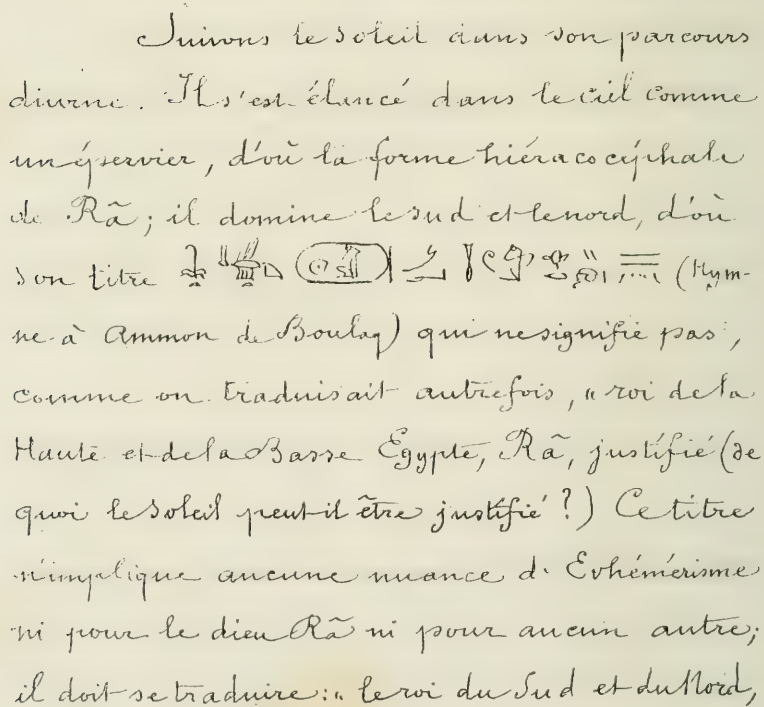 Suivons le soleil dans son parcours
diurne. Il s'est élancé dans le ciel comme
un épervier, d'où la forme hiéracocéphale
de Rã; il domine le sud et le nord, d'où
son titre (Hym-
ne à Ammon de Boulaq) qui ne signifie pas,
comme on traduisait autrefois, « roi de la
Haute et de la Basse Égypte, Rã, justifié (de
quoi le soleil peut-il être justifié ?) Ce titre
n'implique aucune nuance d'Evhémérisme
ni pour le dieu Rã ni pour aucun autre;
il doit se traduire: « le roi du Sud et du Nord,